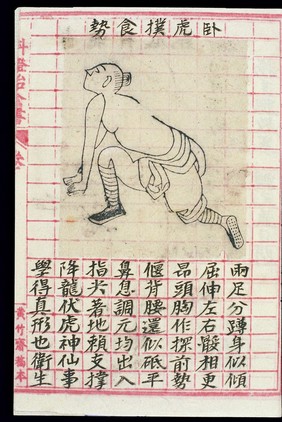 卧虎撲食勢
兩足分蹲身似傾
屈伸左右骽相更
昂頭胸作探前勢
偃背腰還似砥平
鼻息調元均出入
指尖著地賴支撐
降龍伏虎神仙事
學得真形也衛生
科證治全書
卷
黃竹齋稿本